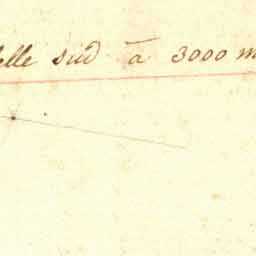 elle sud à 3000 m